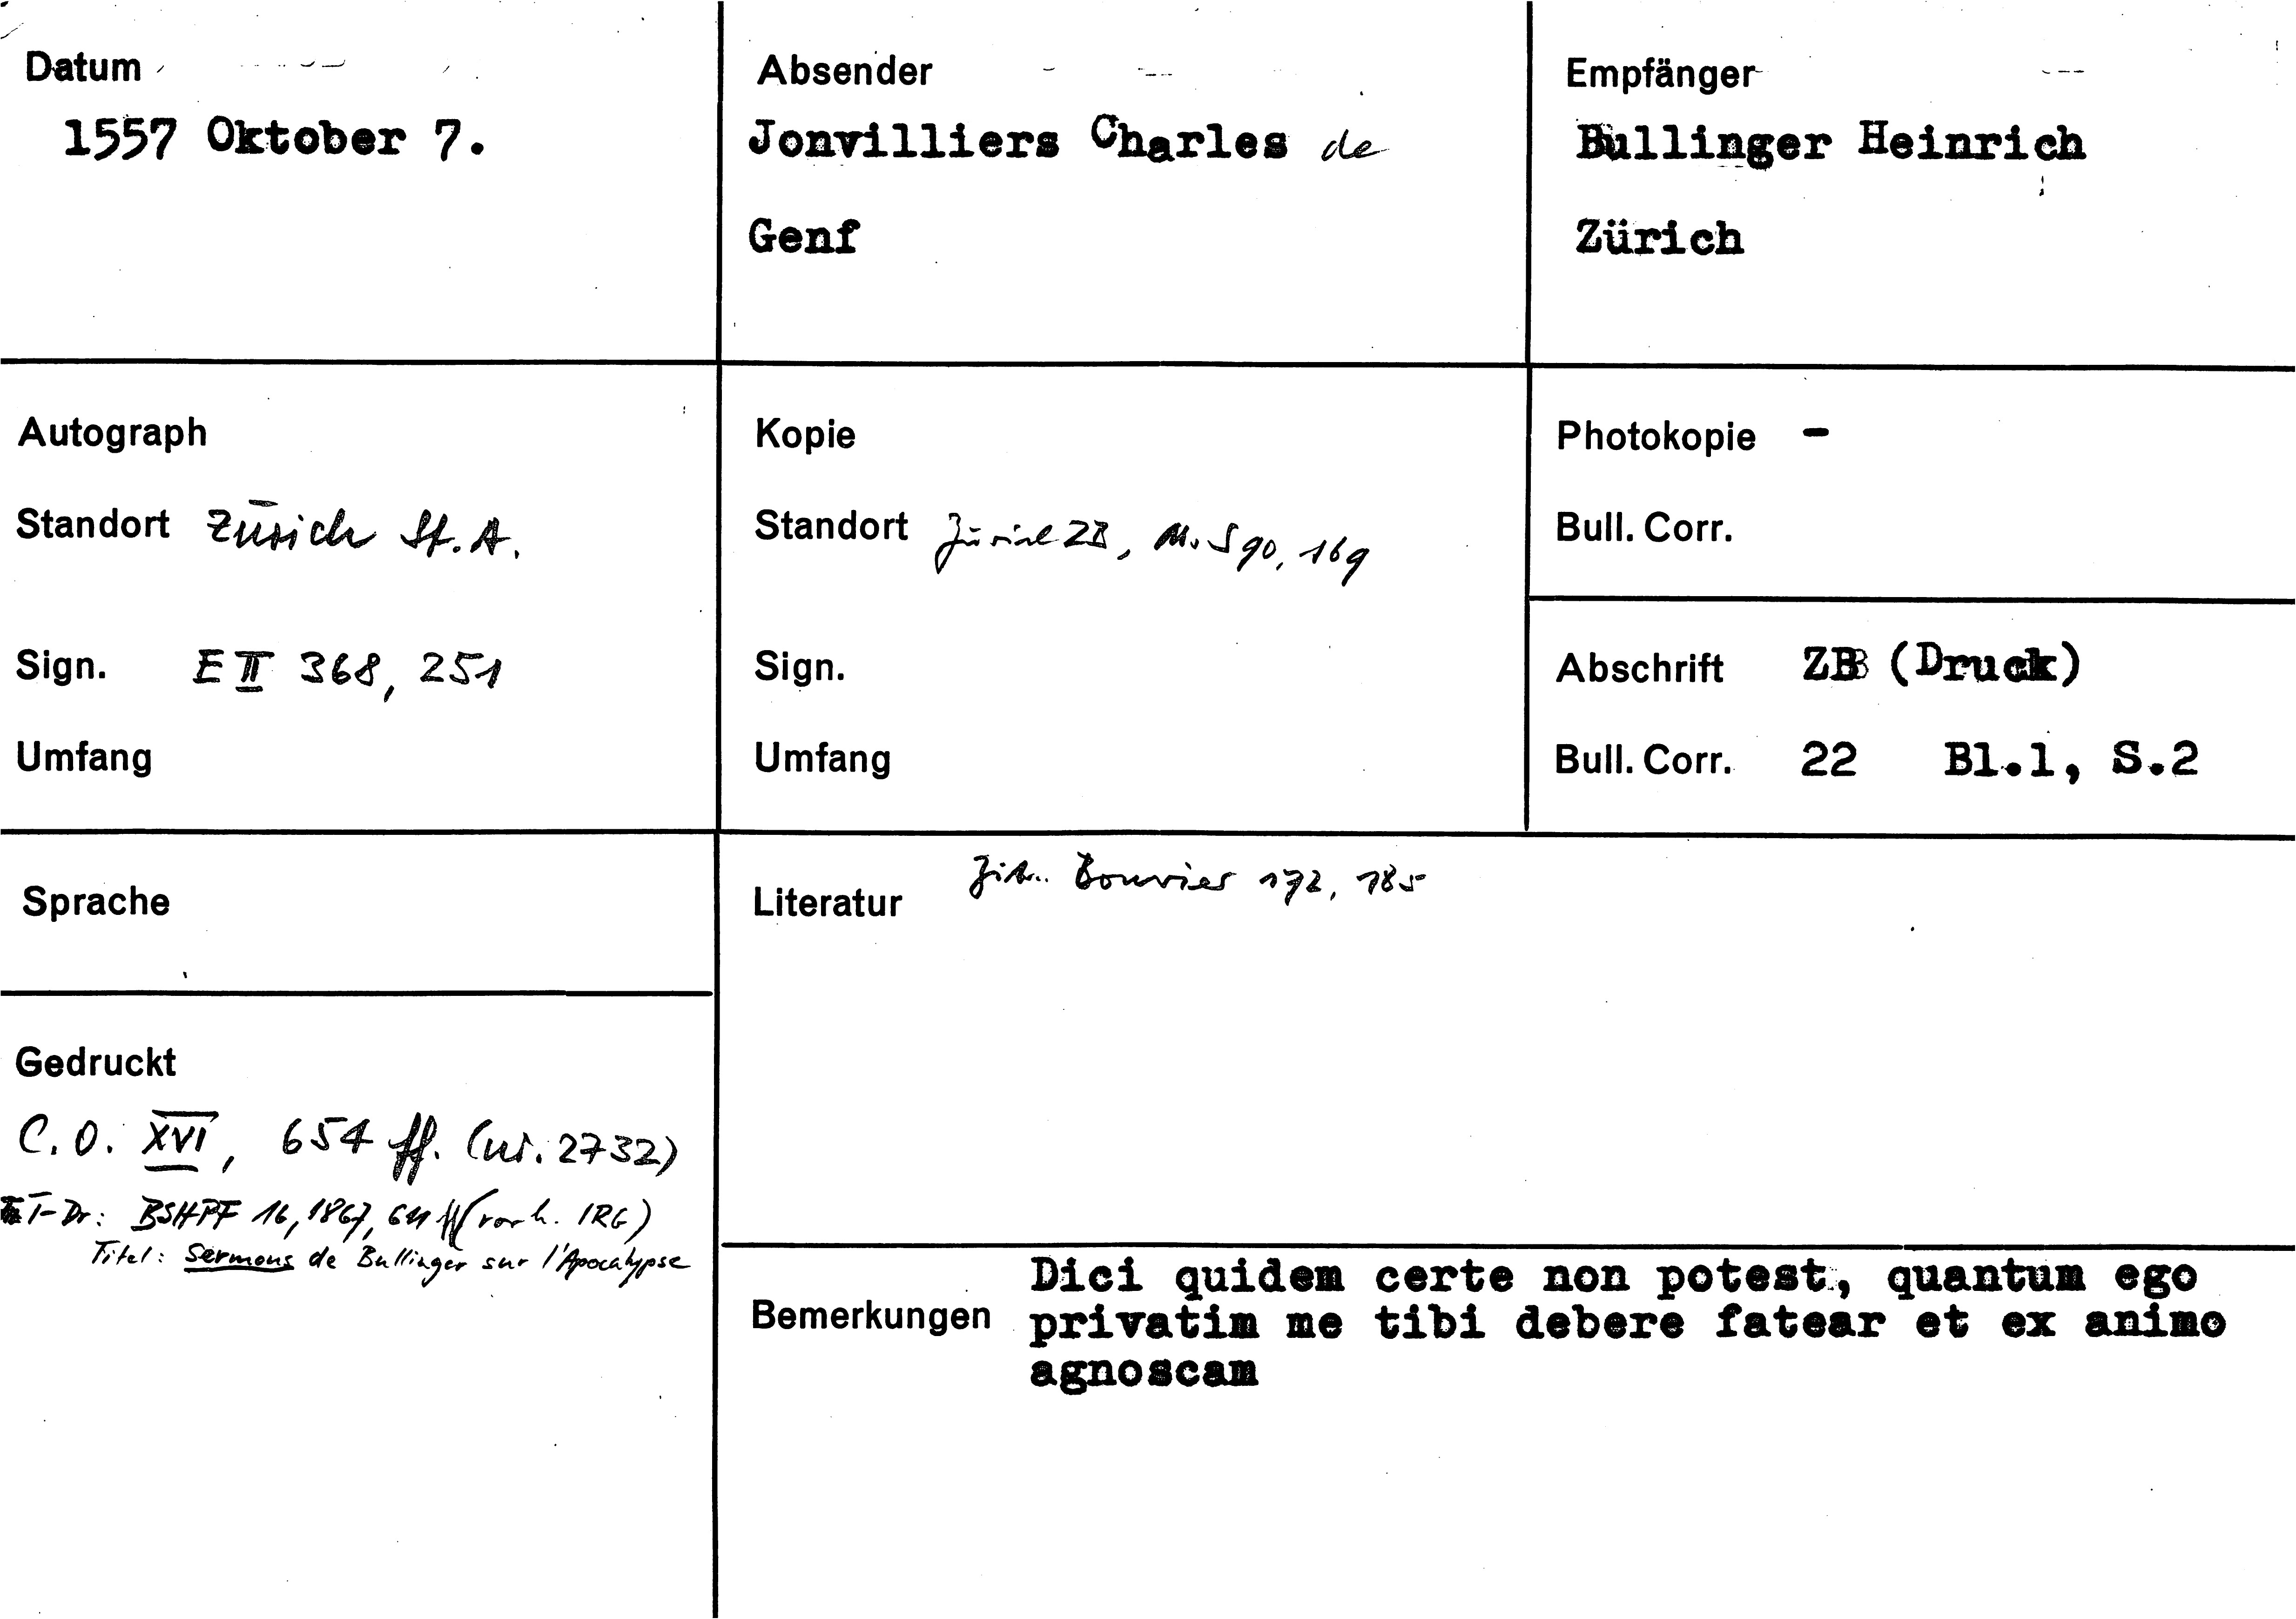 Datum
1557 Oktober 7.
Absender
Jonvilliers Charles de
Genf
Empfänger
Bullinger Heinrich
Zürich
Autograph
Standort Zürich St. A.
Sign. E II 368, 251
Umfang
Kopie
Standort Zürich ZB, Ms S 90, 169
Sign.
Umfang
Photokopie -
Bull. Corr.
Abschrift ZB (Druck)
Bull. Corr. 22 Bl.1, S.2
Sprache
Gedruckt
C. O. XVI, 654 ff. (nr. 2732)
T-Dr: BSHPF 16, 1867, ff (vorh. IRG)
Titel: Sermons de Bullinger sur l'Apocalypse
Literatur Zit. Bouvier 172, 185
Bemerkungen
Dici quidem certe non potest, quantum ego
privatim me tibi debere fatear et ex animo
agnoscam